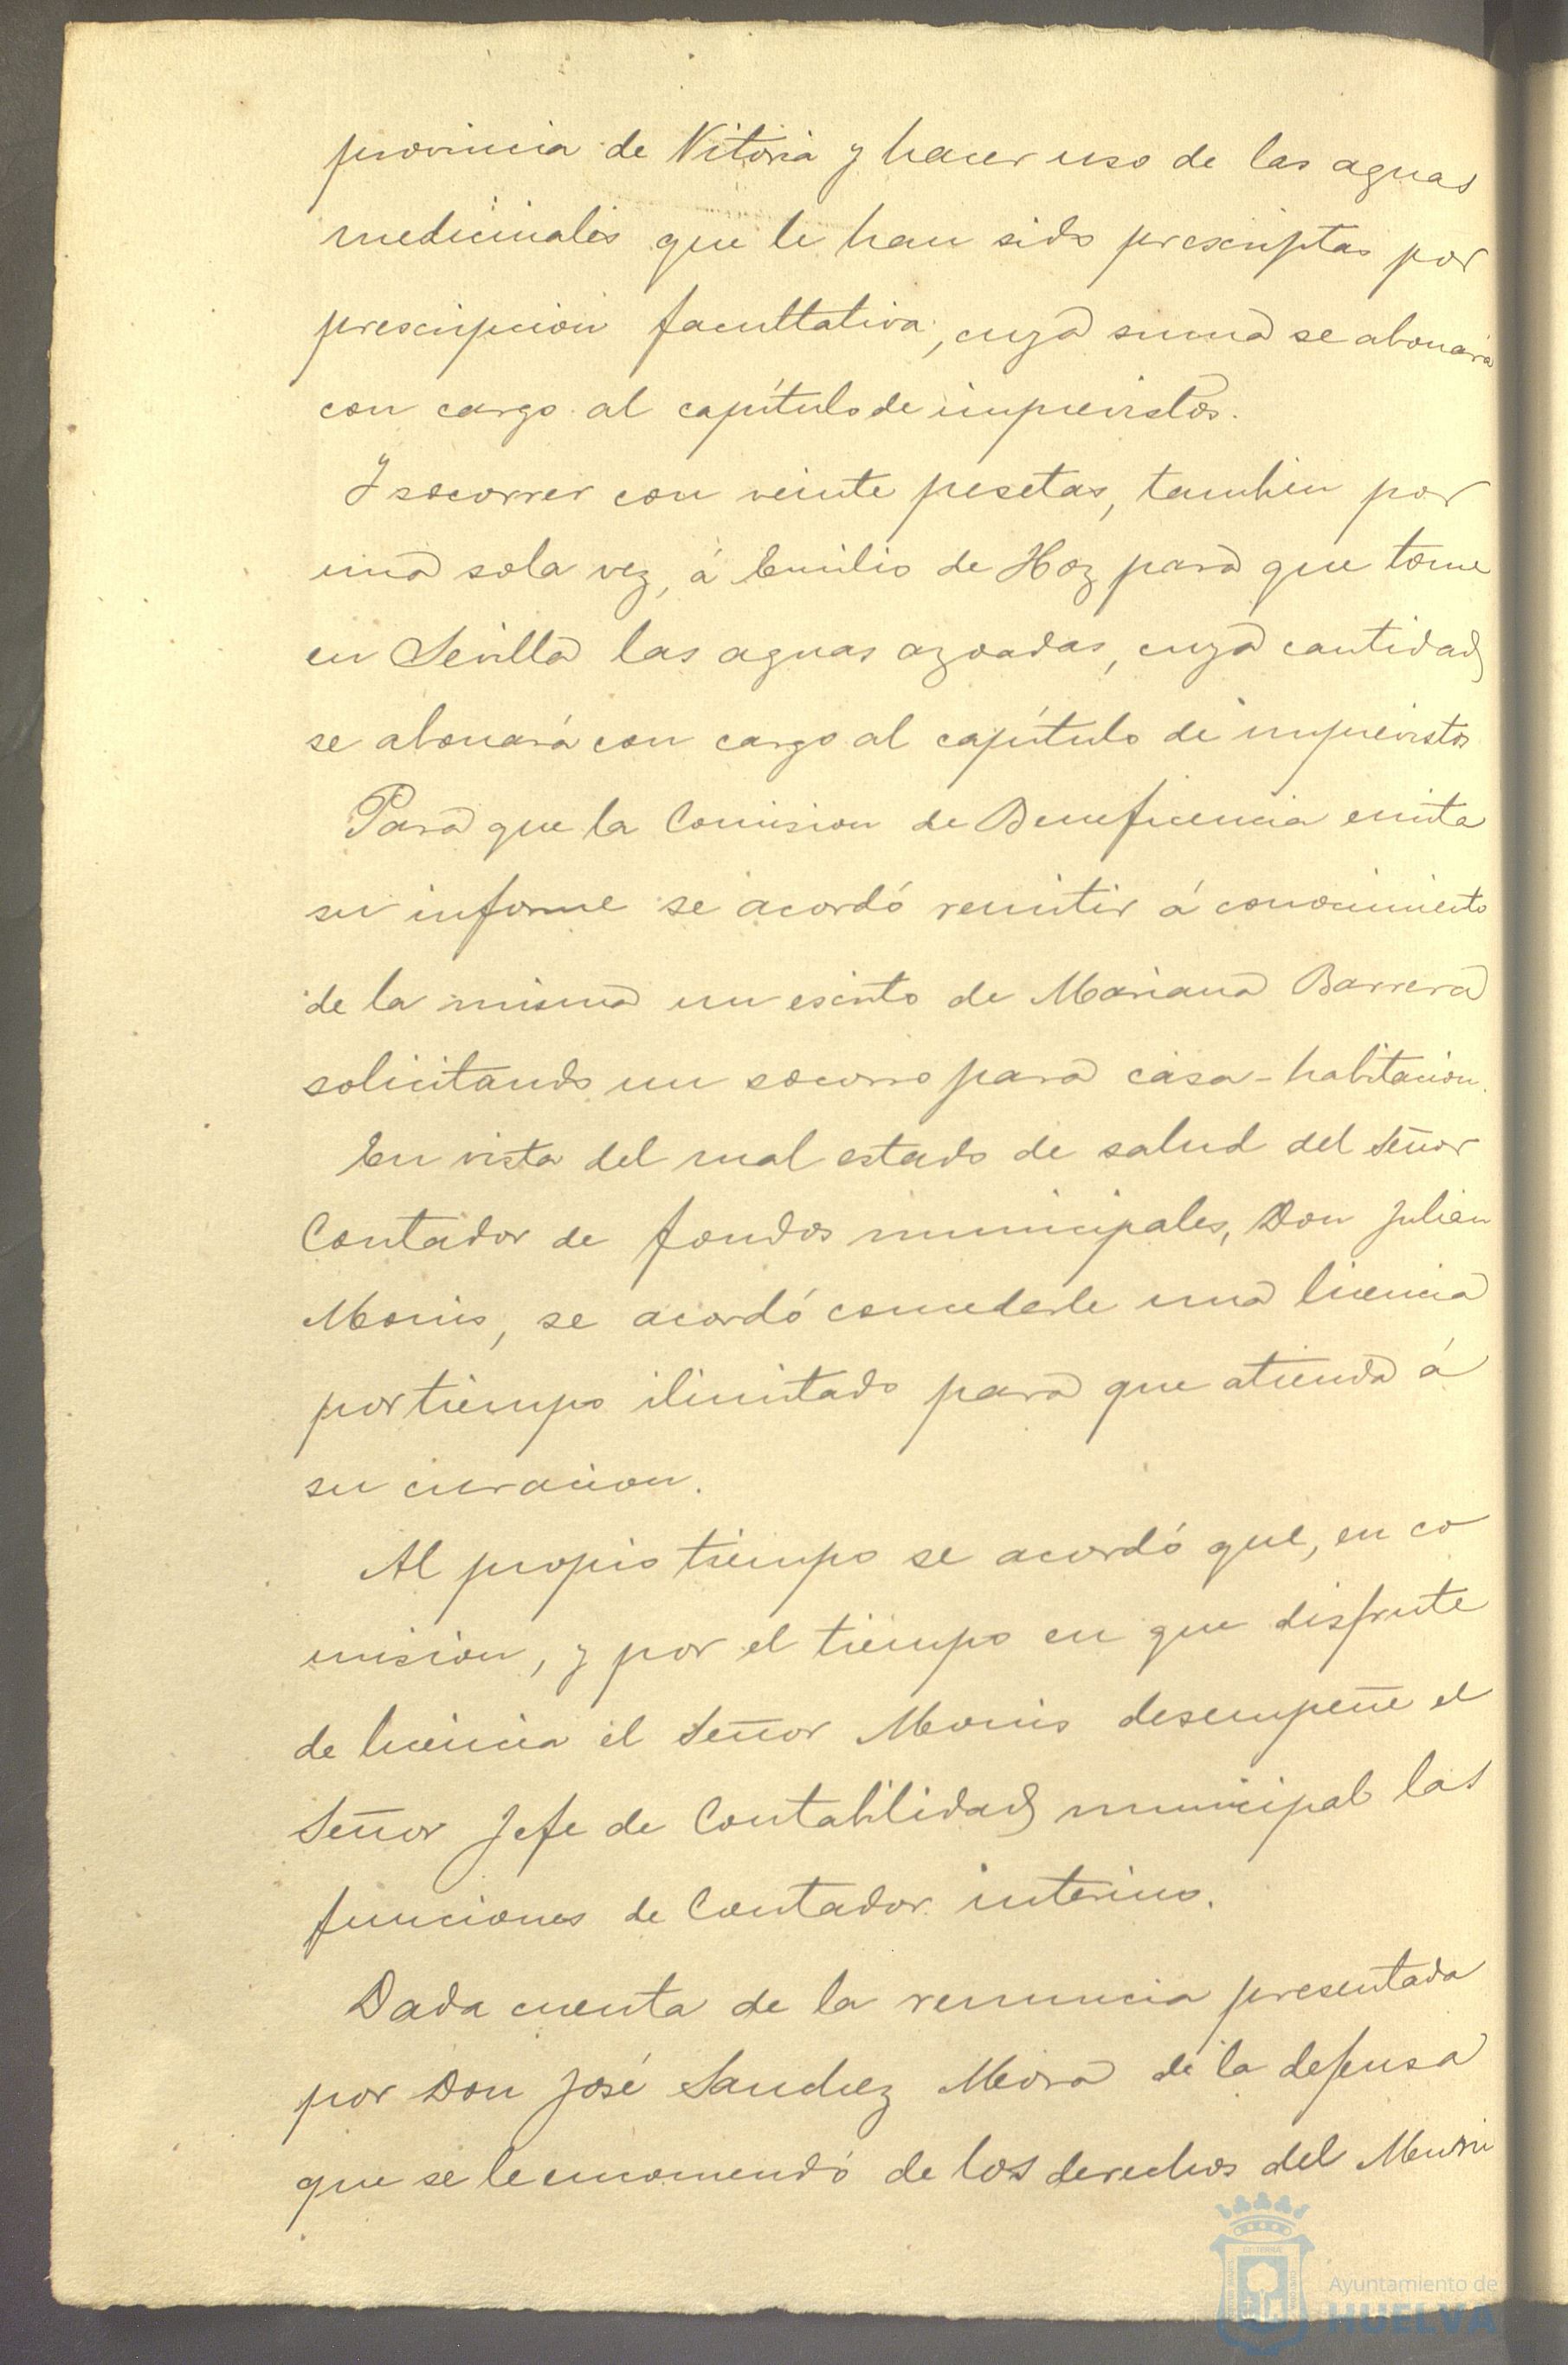 provincia de Vitoria y hacer uso de las aguas
medicinales que le han sido prescriptas por
prescripcion facultativa, cuya suma se abonará
con cargo al capítulo de imprevistos.
Y socorrer con veinte pesetas, tambien por
una sola vez, á Emilio de Hoz para que tome
en Sevilla las aguas azoadas, cuya cantidad
se abonará con cargo al capítulo de imprevistos
Para que la Comision de Beneficencia emita
su informe se acordó remitir á conocimiento
de la misma un escrito de Mariana Barrera
solicitando un socorro para casa-habitacion.
En vista del mal estado de salud del Señor
Contador de fondos municipales, Don Julian
Monis, se acordó concederle una licencia
por tiempo ilimitado para que atienda á
su curacion.
Al propio tiempo se acordó que, en co
mision, y por el tiempo en que disfrute
de licencia el Señor Monis desempeñe el
Señor Jefe de Contabilidad municipal las
funciones de Contador interino.
Dada cuenta de la renuncia presentada
por Don José Sanchez Mora de la defensa
que se le encomendó de los derechos del Muni
Ayuntamiento de
HUELVA